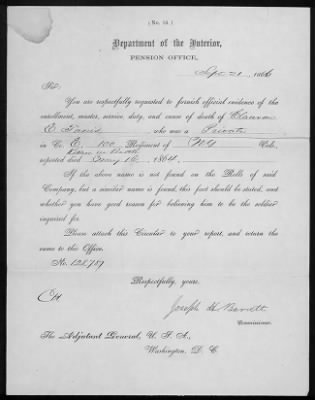 (No. 15.)
Department of the Interior,
PENSION OFFICE,
Sept 21 1866
Sir:
You are respectfully requested to furnish official evidence of the
enrollment, muster, service, duty, and cause of death of Clarence
E. who was a Private
in Co. E, 100 Regiment of Vols.,
reported died 16, 1864.
If the above name is not found on the Rolls of said
Company, but a similar name is found, this fact should be stated, and
whether you have good reason for believing him to be the soldier
inquired for.
Please attach this Circular to your report, and return the
same to this Office.
No. 128,789
Respectfully, yours,
Joseph H Barrett
Commissioner.
The Adjutant General, U. S. A.,
Washington, D. C.